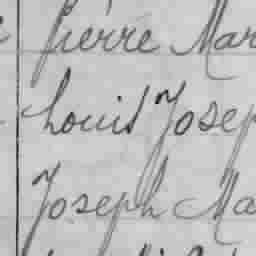 Pierre Mar
Louis Josep
Joseph Ma